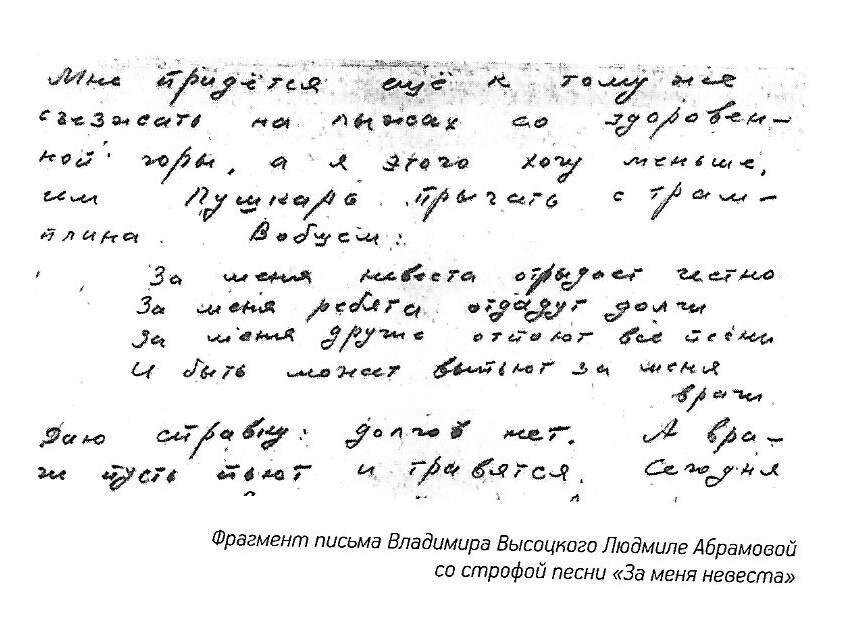 Мне придётся ещё к тому же
съезжать на лыжах со здоровен-
ной горы, а я этого хочу меньше,
чем Пушкарь прыгать с трам-
плина. Вобщем:
За меня невеста отрыдает честно
За меня ребята отдадут долги
За меня другие отпоют все песни
И быть может выпьют за меня
враги.
Даю справку: долгов нет. А вра-
ги пусть пьют и травятся. Сегодня
Фрагмент письма Владимира Высоцкого Людмиле Абрамовой
со строфой песни «За меня невеста»